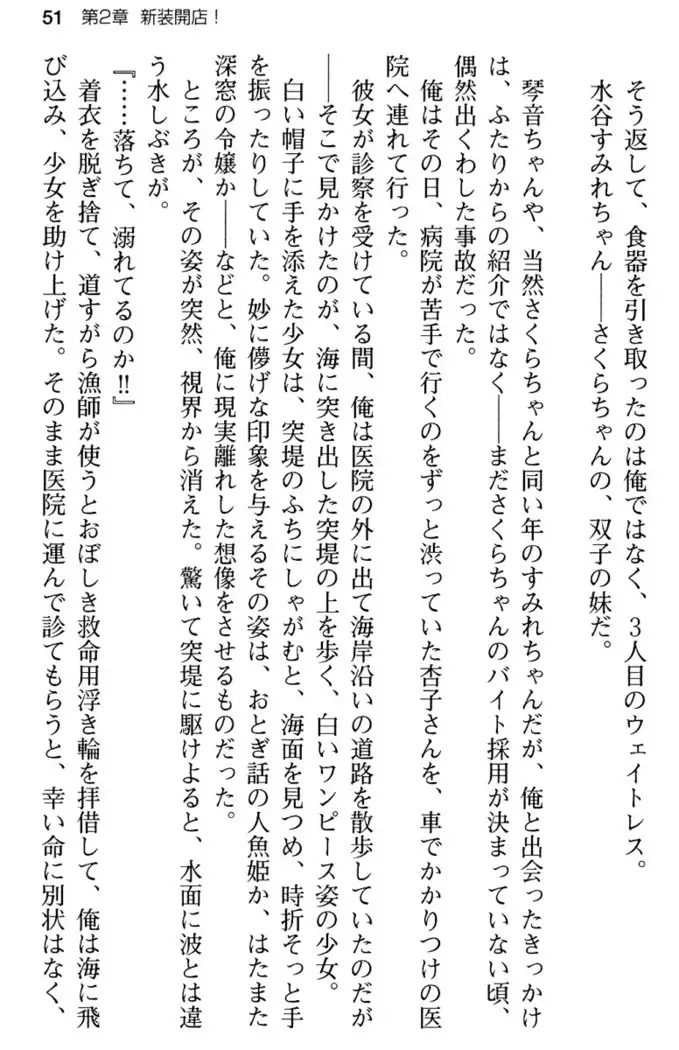 51 第2章 新装開店！
そう返して、食器を引き取ったのは俺ではなく、3人目のウェイトレス。
水谷すみれちゃん――さくらちゃんの、双子の妹だ。
琴音ちゃんや、当然さくらちゃんと同い年のすみれちゃんだが、俺と出会ったきっかけ
は、ふたりからの紹介ではなく――まださくらちゃんのバイト採用が決まっていない頃、
偶然出くわした事故だった。
俺はその日、病院が苦手で行くのをずっと渋っていた杏子さんを、車でかかりつけの医
院へ連れて行った。
彼女が診察を受けている間、俺は医院の外に出て海岸沿いの道路を散歩していたのだが
――そこで見かけたのが、海に突き出した突堤の上を歩く、白いワンピース姿の少女。
白い帽子に手を添えた少女は、突堤のふちにしゃがむと、海面を見つめ、時折そっと手
を振ったりしていた。妙に儚げな印象を与えるその姿は、おとぎ話の人魚姫か、はたまた
深窓の令嬢か――などと、俺に現実離れした想像をさせるものだった。
ところが、その姿が突然、視界から消えた。驚いて突堤に駆けよると、水面に波とは違
う水しぶきが。
『……落ちて、溺れてるのか‼』
着衣を脱ぎ捨て、道すがら漁師が使うとおぼしき救命用浮き輪を拝借して、俺は海に飛
び込み、少女を助け上げた。そのまま医院に運んで診てもらうと、幸い命に別状はなく、